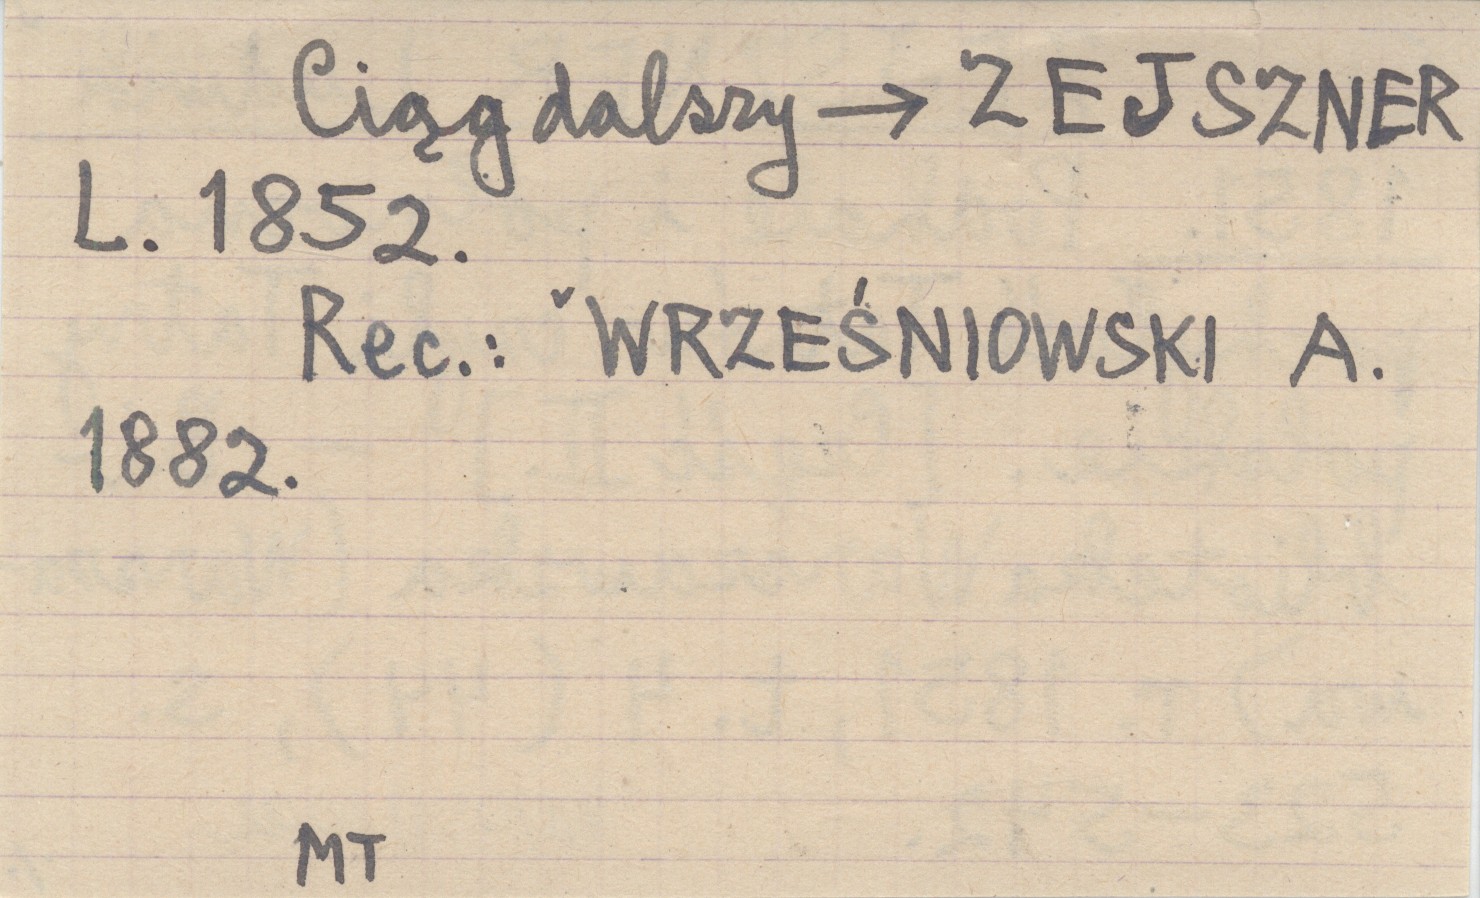 Ciąg dalszy → ZEJSZNER
L. 1852.
Rec.: ˇWRZEŚNIOWSKI A.
1882.
MT